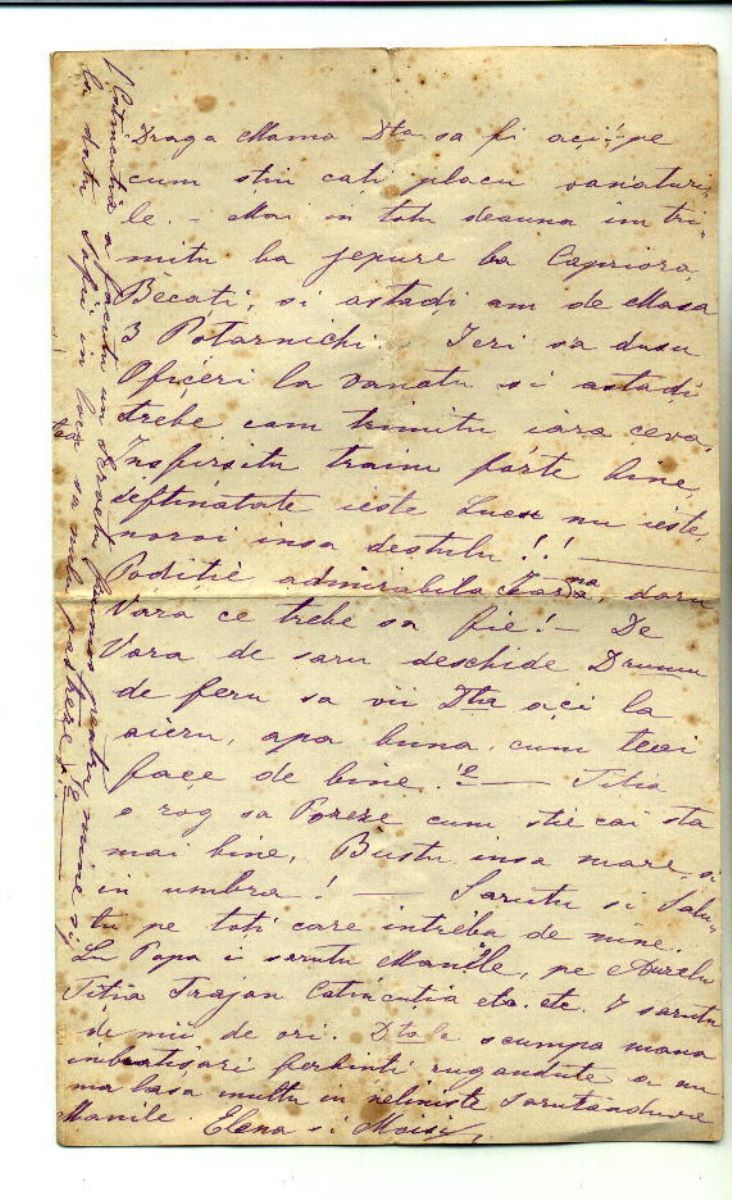 Draga Mama Dta sa fi açi! pe
cum știu cați placu vanaturi-
le. - Mai in totu deauna im tri-
mitu ba jepure ba Capriora,
Becați, si astadi am de Masa
3 Potarnichi. Ieri sa dusu
Ofițeri la vanatu si astadi
trebe cam trimitu iara ceva.
Insfirsitu traim forte bine,
eftinatate ieste Lucsu nu ieste,
noroi insa destulu!! —
Poditie admirabila Iarna, daru
Vara ce trebe sa fie! — De
Vara de saru deschide Drumu
de feru sa vii Dta açi la
aieru, apa buna, cum teai
façe de bine. !? — Titia
o rog sa Poseze cum stie cai sta
mai bine, Bustu insa mare, si
in umbra! — Sarutu si Salu-
tu pe toți care intréba de mine.
Lu Papa i sarutu Manile, pe Aurelu
Titia Trajan Catincutia etc. etc. I sarutu
de mii de ori. Dtale scumpa mama
imbratișari ferbinți rugandute a nu
ma lasa multu in neliniste Sarutanduve
Manile. Elena si Moisi,
(Catincutia a facutu un Srostu frumos pentru mine și
la datu Sofii in loc sa milu pastreze,!? —